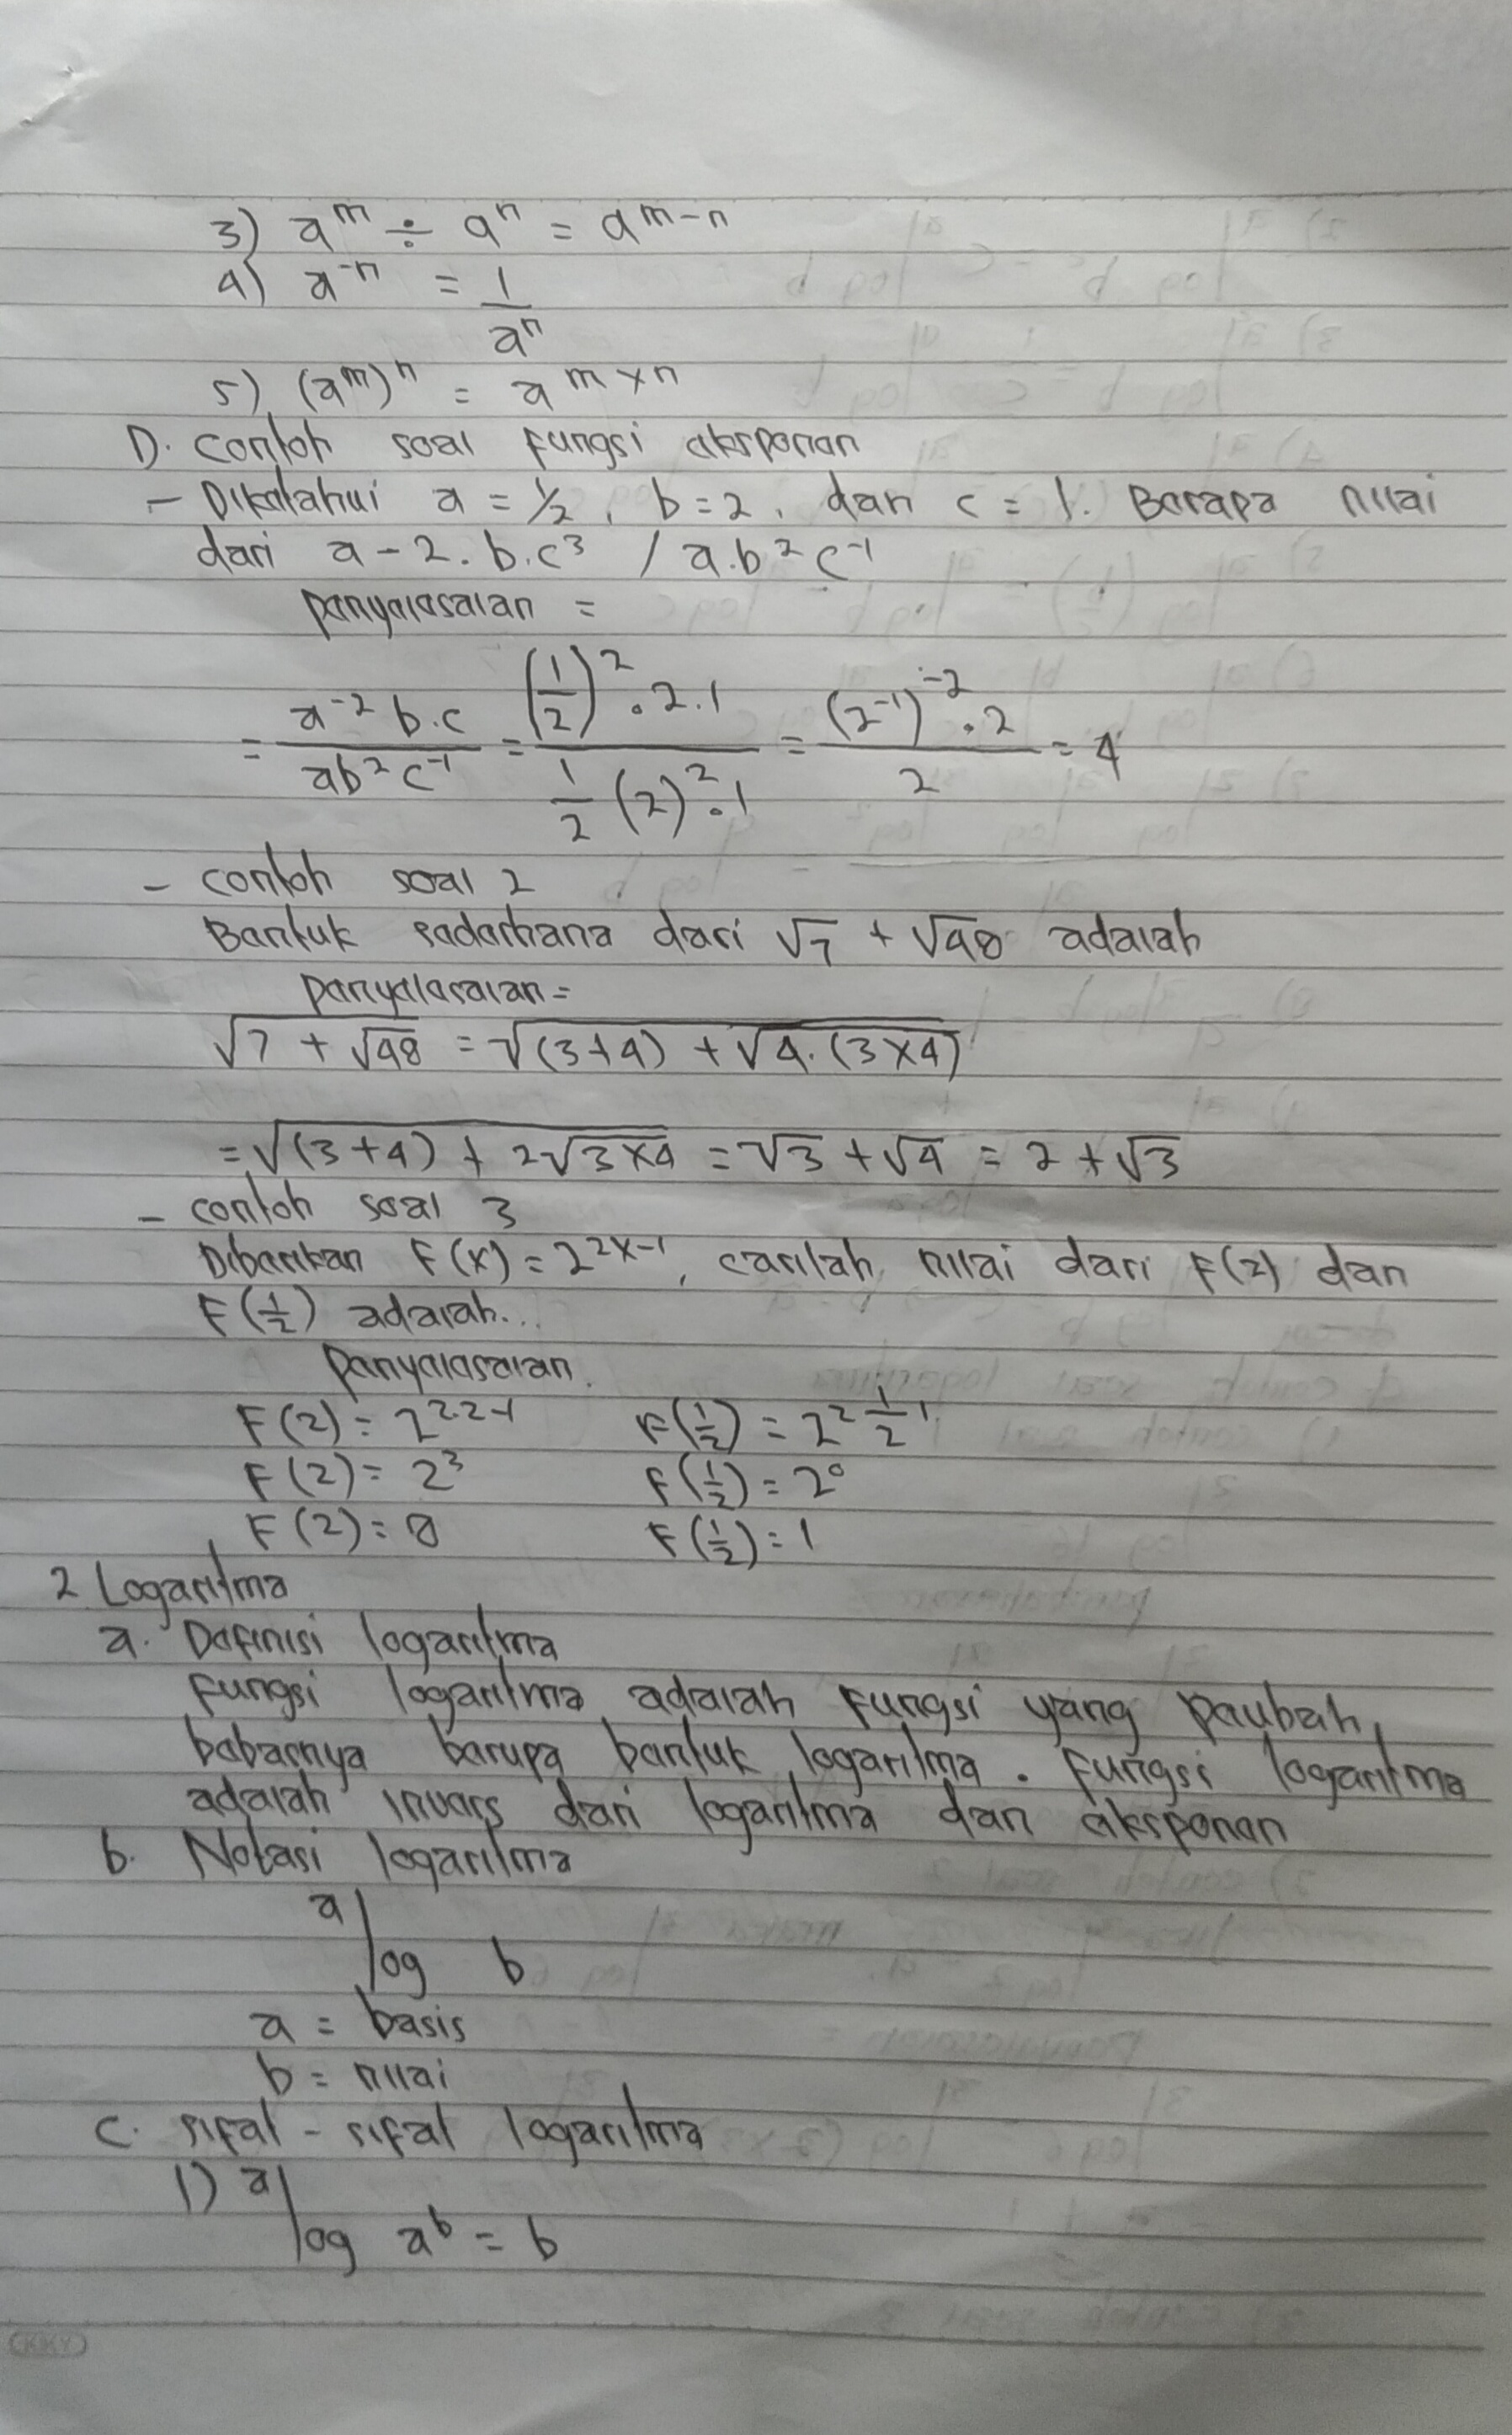 3) a^m ÷ a^n = a^m-n
4) a^-n = 1/a^n
5) (a^m)^n = a^m×n
D. contoh soal fungsi eksponen
- Diketahui a = 1/2, b = 2, dan c = 1. Berapa nilai
dari a - 2. b. c^3 / a.b^2 c^-1
penyelesaian =
= a^-2 b.c / ab^2 c^-1 = (1/2)^2 . 2.1 / 1/2 (2)^2 . 1 = (2^-1)^-2 . 2 / 2 = 4
- contoh soal 2
Bentuk sederhana dari √7 + √48 adalah
penyelesaian =
√7 + √48 = √(3+4) + √4.(3×4)
= √(3+4) + 2√3×4 = √3 + √4 = 2 + √3
- contoh soal 3
Diberikan F(x) = 2^2x-1, carilah nilai dari F(2) dan
F(1/2) adalah...
Penyelesaian.
F(2) = 2^2.2-1 F(1/2) = 2^2 1/2 -1
F(2) = 2^3 F(1/2) = 2^0
F(2) = 8 F(1/2) = 1
2. Logaritma
a. Definisi logaritma
Fungsi logaritma adalah fungsi yang peubah
bebasnya berupa bentuk logaritma. Fungsi logaritma
adalah invers dari logaritma dan eksponen
b. Notasi logaritma
a| log b
a = basis
b = nilai
c. sifat - sifat logaritma
1) a| log a^b = b
KKY